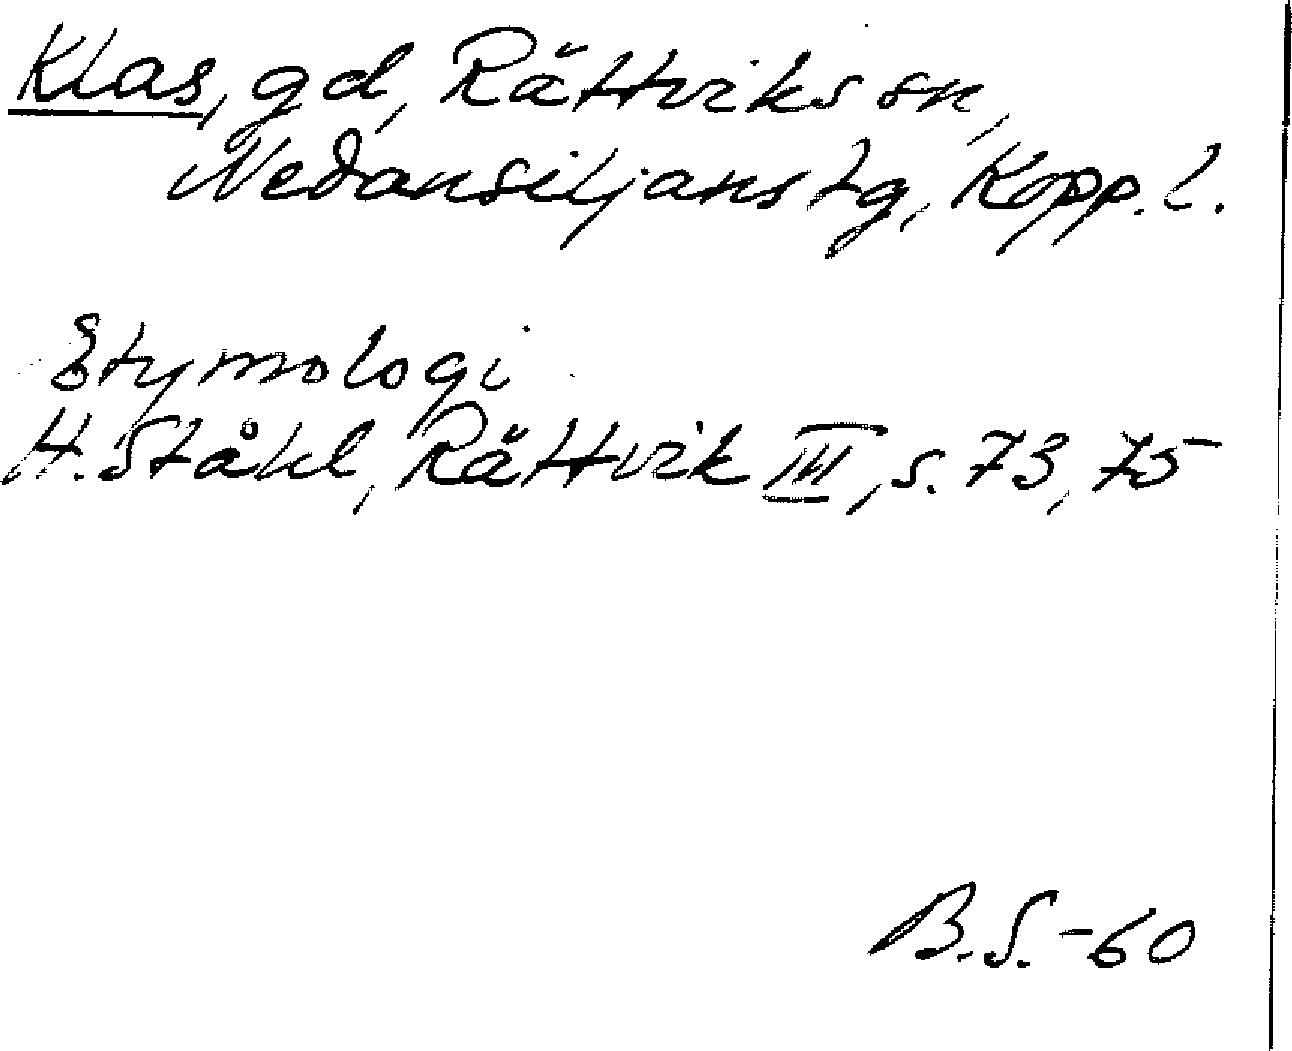 Klas, gd, Rättviks sn,
Nedansiljans tg, Kopp. l.
Etymologi
H. Ståhl, Rättvik III, s. 73, 75
B.S.-60